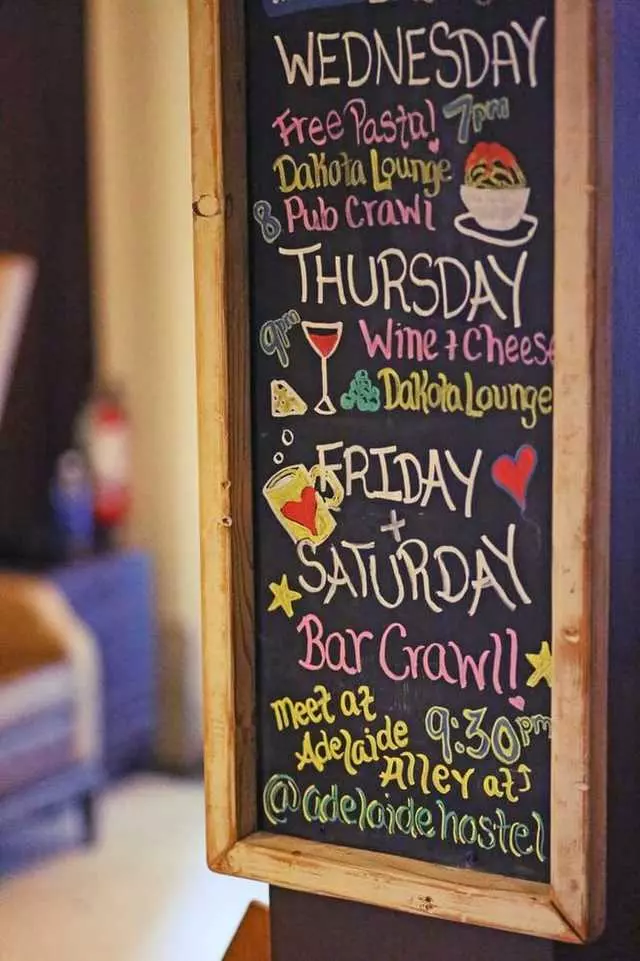 WEDNESDAY
Free Pasta! 7pm
Dakota Lounge
8 Pub Crawl
THURSDAY
9pm Wine + Cheese
Dakota Lounge
FRIDAY
+
SATURDAY
Bar Crawl!
meet at
Adelaide 9:30pm
Alley at
@adelaidehostel